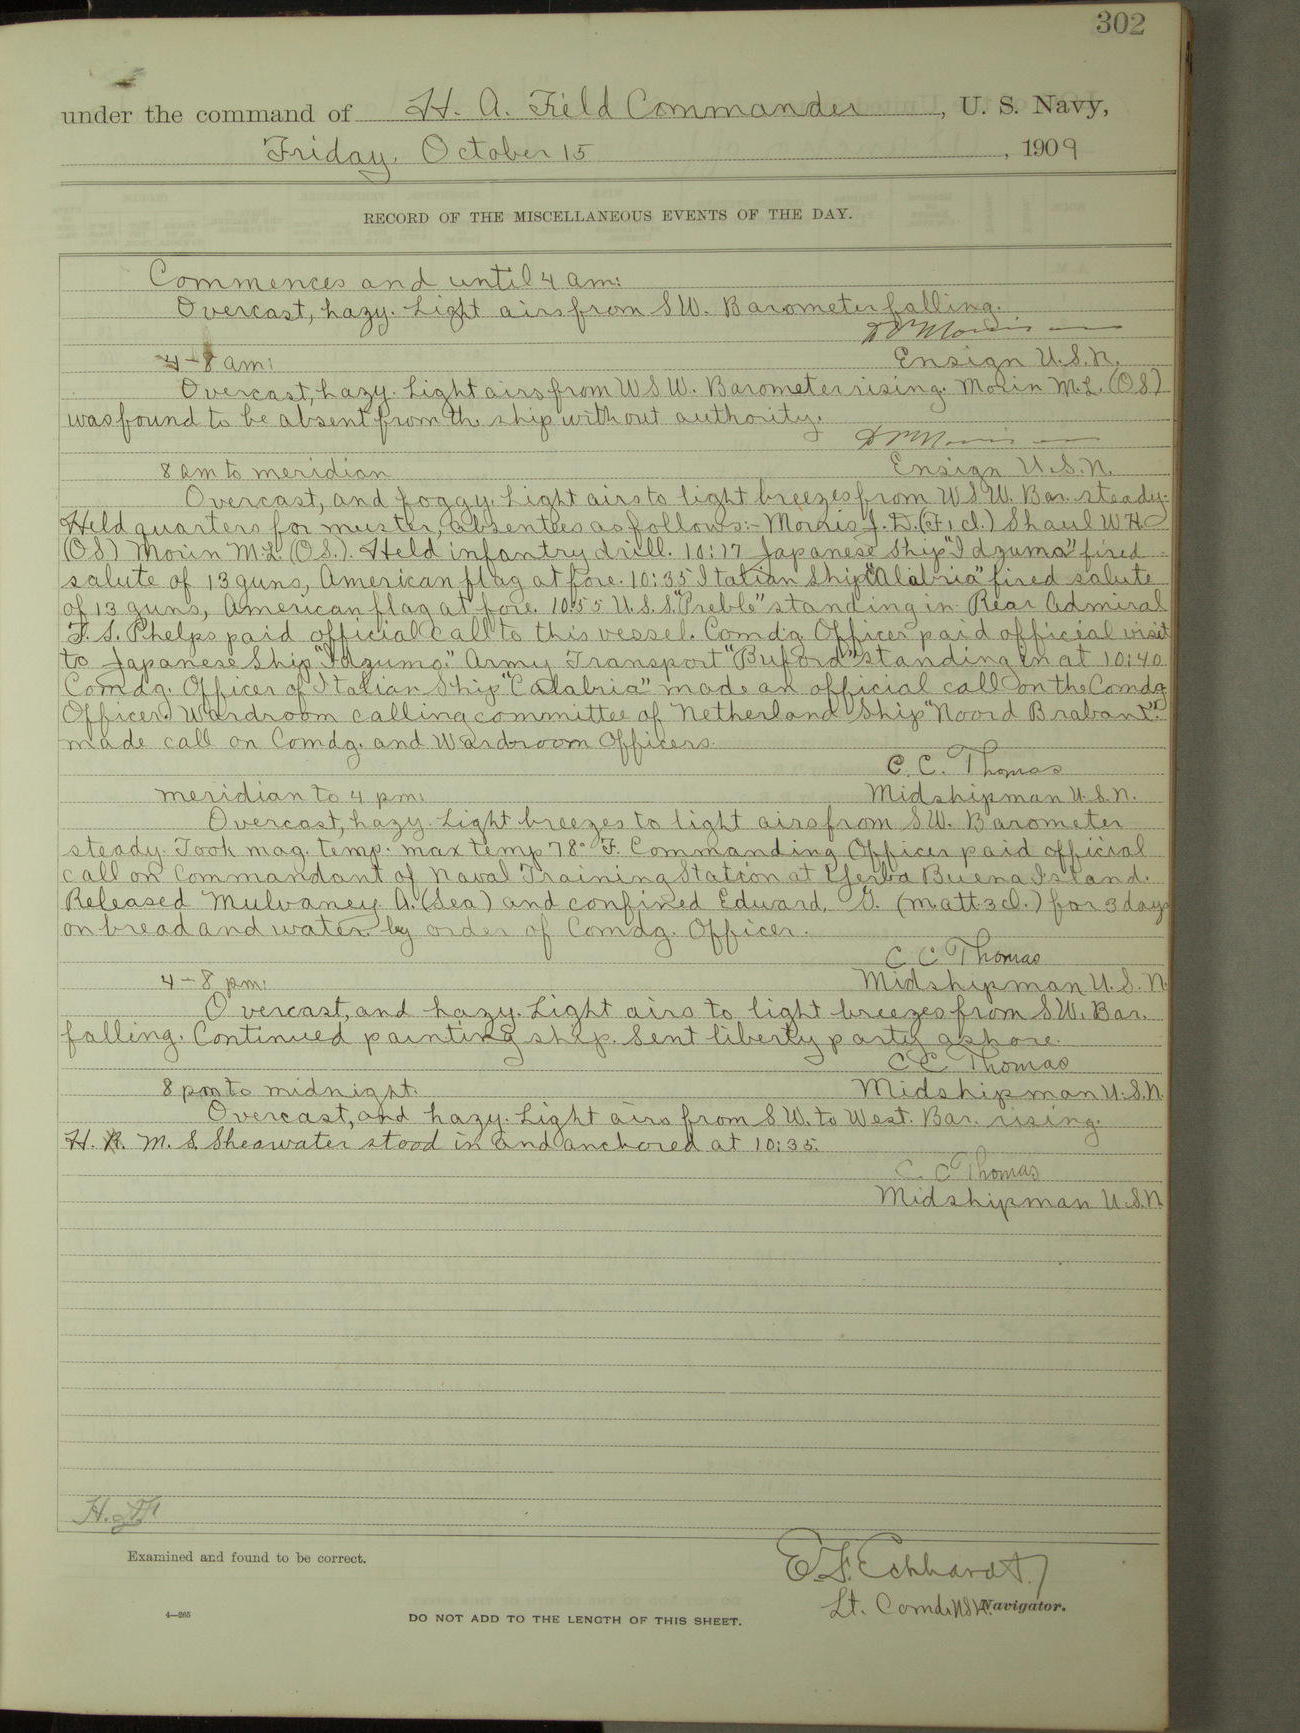 302
under the command of H. A. Field Commander, U. S. Navy,
Friday, October 15, 1909
RECORD OF THE MISCELLANEOUS EVENTS OF THE DAY.
Commences and until 4 am:
Overcast, hazy. Light airs from SW. Barometer falling.
4-8 am:
Ensign U.S.N.
Overcast, hazy. Light airs from WSW. Barometer rising. Morin M.L. (OS)
was found to be absent from the ship without authority.
8 am to meridian
Ensign U.S.N.
Overcast, and foggy. Light airs to light breezes from WSW. Bar. steady.
Held quarters for muster, absentees as follows:- Morris J. D. (F. 1 cl.) Shaul W H
(OS) Morin M L (O.S.). Held infantry drill. 10:17 Japanese Ship "Idzuma" fired
salute of 13 guns, American flag at fore. 10:35 Italian Ship "Calabria" fired salute
of 13 guns, American flag at fore. 10:55 U. S. S. "Preble" standing in. Rear Admiral
T. S. Phelps paid official call to this vessel. Comd'g Officer paid official visit
to Japanese Ship "Idzumo." Army Transport "Buford" standing in at 10:40
Comdg. Officer of Italian Ship "Calabria" made an official call on the Comdg
Officer. Wardroom calling committee of Netherland Ship "Noord Brabant"
made call on Comdg. and Wardroom Officers.
C. C. Thomas
meridian to 4 pm:
Midshipman U.S.N.
Overcast, hazy. Light breezes to light airs from SW. Barometer
steady. Took mag. temp. max temp 78° F. Commanding Officer paid official
call on Commandant of Naval Training Station at Yerba Buena Island.
Released Mulvaney A. (Sea) and confined Edward, G. (m.att 3 cl.) for 3 days
on bread and water by order of Comdg. Officer.
C C Thomas
4-8 pm:
Midshipman U. S. N.
Overcast, and hazy. Light airs to light breezes from SW. Bar.
falling. Continued painting ship. Sent liberty party ashore.
C C Thomas
8 pm to midnight.
Midshipman U.S.N.
Overcast, and hazy. Light airs from SW. to West. Bar. rising.
H. M. S. Shearwater stood in and anchored at 10:35.
C C Thomas
Midshipman U.S.N.
Examined and found to be correct.
E. F. Eckhardt
Lt. Comdr. Navigator.
4—265
DO NOT ADD TO THE LENGTH OF THIS SHEET.